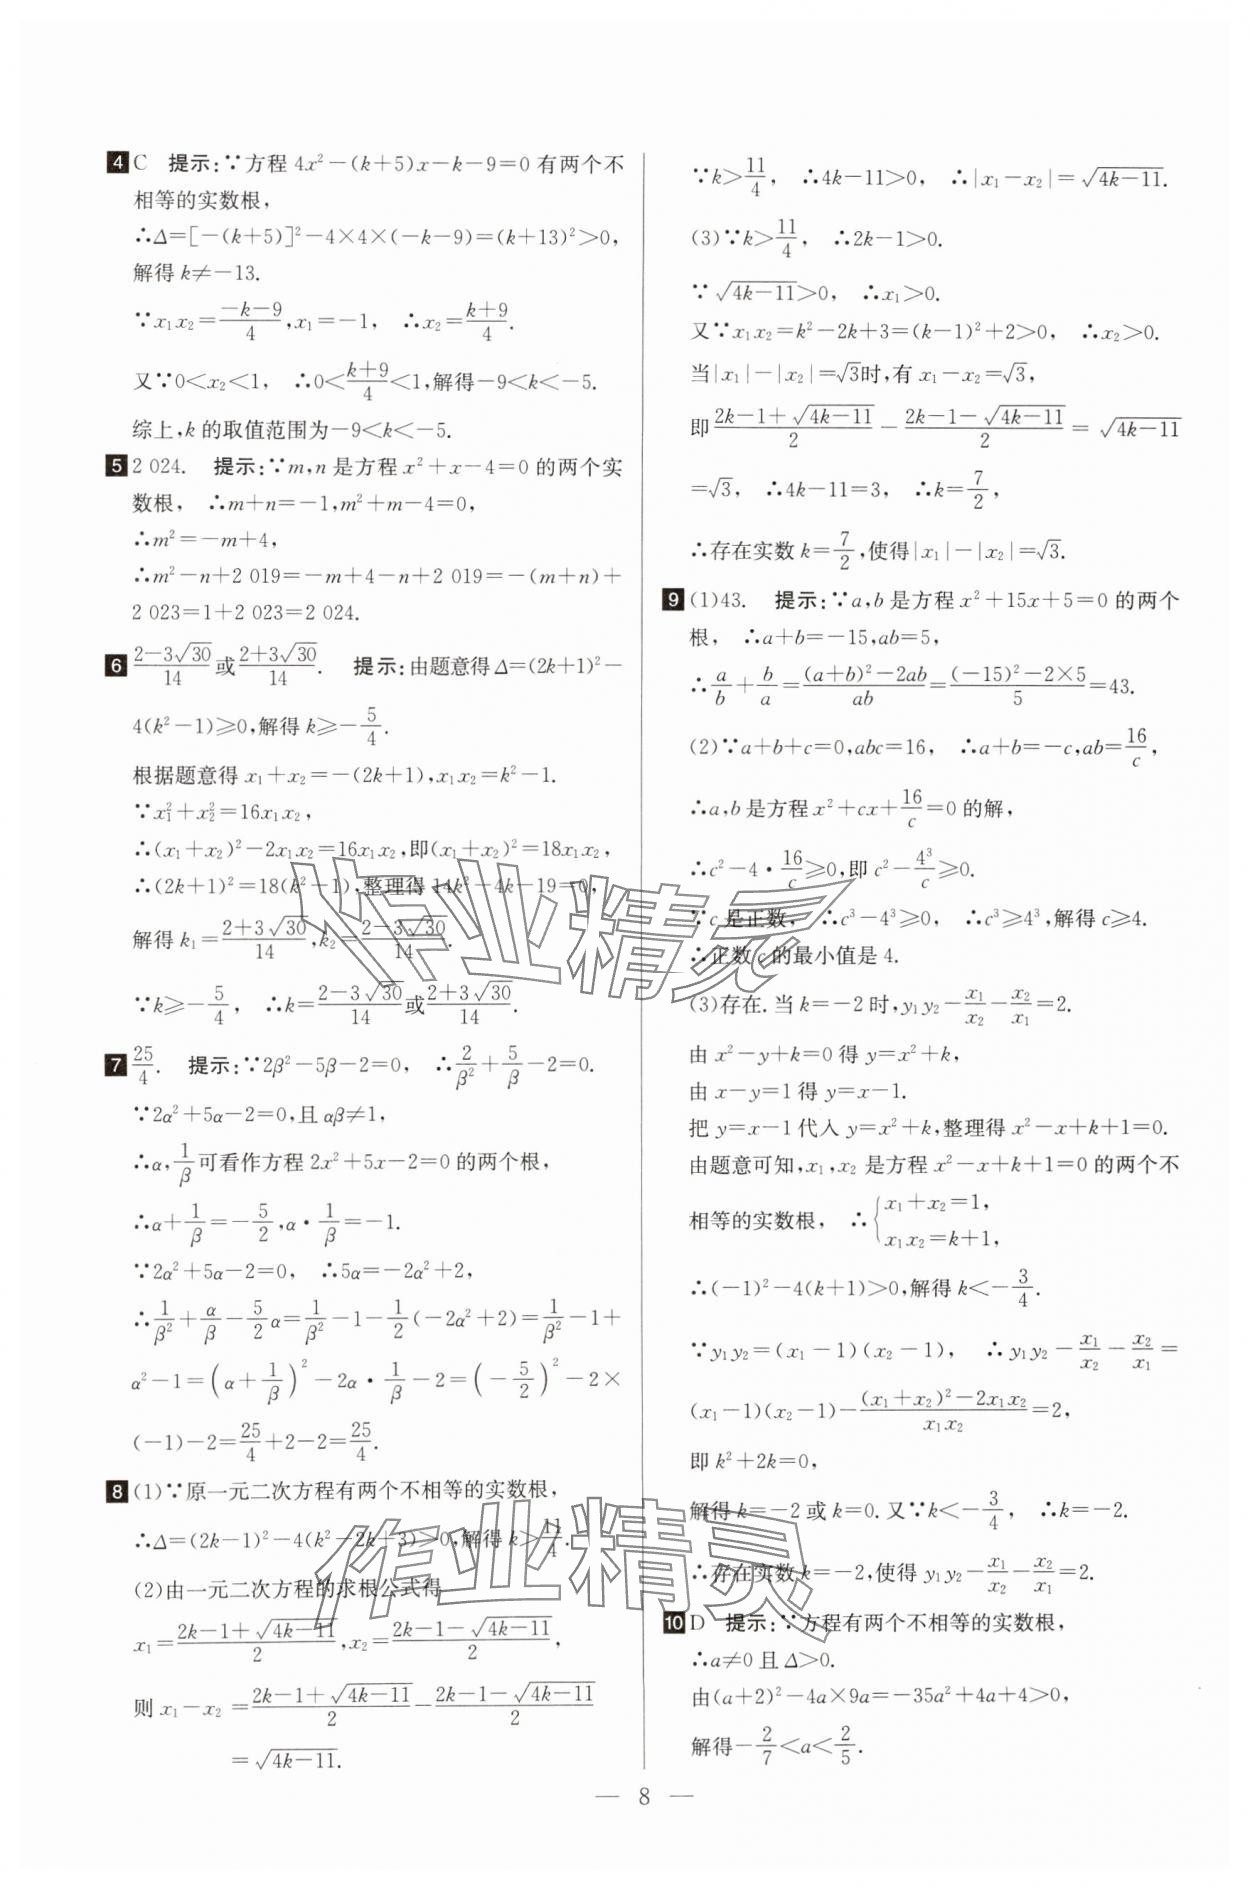 4 C 提示:∵方程 4x²－(k＋5)x－k－9＝0 有两个不
相等的实数根，
∴Δ＝[－(k＋5)]²－4×4×(－k－9)＝(k＋13)²＞0，
解得 k≠－13.
∵x₁x₂＝(－k－9)/4，x₁＝－1， ∴x₂＝(k＋9)/4.
又∵0＜x₂＜1， ∴0＜(k＋9)/4＜1，解得－9＜k＜－5.
综上，k 的取值范围为－9＜k＜－5.
5 2 024. 提示:∵m，n 是方程 x²＋x－4＝0 的两个实
数根， ∴m＋n＝－1，m²＋m－4＝0，
∴m²＝－m＋4，
∴m²－n＋2 019＝－m＋4－n＋2 019＝－(m＋n)＋
2 023＝1＋2 023＝2 024.
6 (2－3√30)/14 或 (2＋3√30)/14. 提示:由题意得 Δ＝(2k＋1)²－
4(k²－1)≥0，解得 k≥－5/4.
根据题意得 x₁＋x₂＝－(2k＋1)，x₁x₂＝k²－1.
∵x₁²＋x₂²＝16x₁x₂，
∴(x₁＋x₂)²－2x₁x₂＝16x₁x₂，即(x₁＋x₂)²＝18x₁x₂，
∴(2k＋1)²＝18(k²－1)，整理得 14k²－4k－19＝0，
解得 k₁＝(2＋3√30)/14，k₂＝(2－3√30)/14.
∵k≥－5/4， ∴k＝(2－3√30)/14 或 (2＋3√30)/14.
7 25/4. 提示:∵2β²－5β－2＝0， ∴2/β²＋5/β－2＝0.
∵2α²＋5α－2＝0，且 αβ≠1，
∴α，1/β 可看作方程 2x²＋5x－2＝0 的两个根，
∴α＋1/β＝－5/2，α·1/β＝－1.
∵2α²＋5α－2＝0， ∴5α＝－2α²＋2，
∴1/β²＋α/β－5/2α＝1/β²－1－1/2(－2α²＋2)＝1/β²－1＋
α²－1＝(α＋1/β)²－2α·1/β－2＝(－5/2)²－2×
(－1)－2＝25/4＋2－2＝25/4.
8 (1)∵原一元二次方程有两个不相等的实数根，
∴Δ＝(2k－1)²－4(k²－2k＋3)＞0，解得 k＞11/4.
(2)由一元二次方程的求根公式得
x₁＝(2k－1＋√(4k－11))/2，x₂＝(2k－1－√(4k－11))/2，
则 x₁－x₂ ＝(2k－1＋√(4k－11))/2－(2k－1－√(4k－11))/2
＝√(4k－11).
∵k＞11/4， ∴4k－11＞0， ∴|x₁－x₂|＝√(4k－11).
(3)∵k＞11/4， ∴2k－1＞0.
∵√(4k－11)＞0， ∴x₁＞0.
又∵x₁x₂＝k²－2k＋3＝(k－1)²＋2＞0， ∴x₂＞0.
当|x₁|－|x₂|＝√3时，有 x₁－x₂＝√3，
即(2k－1＋√(4k－11))/2－(2k－1－√(4k－11))/2＝√(4k－11)
＝√3， ∴4k－11＝3， ∴k＝7/2，
∴存在实数 k＝7/2，使得|x₁|－|x₂|＝√3.
9 (1)43. 提示:∵a，b 是方程 x²＋15x＋5＝0 的两个
根， ∴a＋b＝－15，ab＝5，
∴a/b＋b/a＝((a＋b)²－2ab)/ab＝((－15)²－2×5)/5＝43.
(2)∵a＋b＋c＝0，abc＝16， ∴a＋b＝－c，ab＝16/c，
∴a，b 是方程 x²＋cx＋16/c＝0 的解，
∴c²－4·16/c≥0，即 c²－4³/c≥0.
∵c 是正数， ∴c³－4³≥0， ∴c³≥4³，解得 c≥4.
∴正数 c 的最小值是 4.
(3)存在. 当 k＝－2 时，y₁y₂－x₁/x₂－x₂/x₁＝2.
由 x²－y＋k＝0 得 y＝x²＋k，
由 x－y＝1 得 y＝x－1.
把 y＝x－1 代入 y＝x²＋k，整理得 x²－x＋k＋1＝0.
由题意可知，x₁，x₂ 是方程 x²－x＋k＋1＝0 的两个不
相等的实数根， ∴{x₁＋x₂＝1，
x₁x₂＝k＋1，
∴(－1)²－4(k＋1)＞0，解得 k＜－3/4.
∵y₁y₂＝(x₁－1)(x₂－1)， ∴y₁y₂－x₁/x₂－x₂/x₁＝
(x₁－1)(x₂－1)－((x₁＋x₂)²－2x₁x₂)/x₁x₂＝2，
即 k²＋2k＝0，
解得 k＝－2 或 k＝0. 又∵k＜－3/4， ∴k＝－2.
∴存在实数 k＝－2，使得 y₁y₂－x₁/x₂－x₂/x₁＝2.
10 D 提示:∵方程有两个不相等的实数根，
∴a≠0 且 Δ＞0.
由(a＋2)²－4a×9a＝－35a²＋4a＋4＞0，
解得－2/7＜a＜2/5.
— 8 —
作业精灵
作业精灵